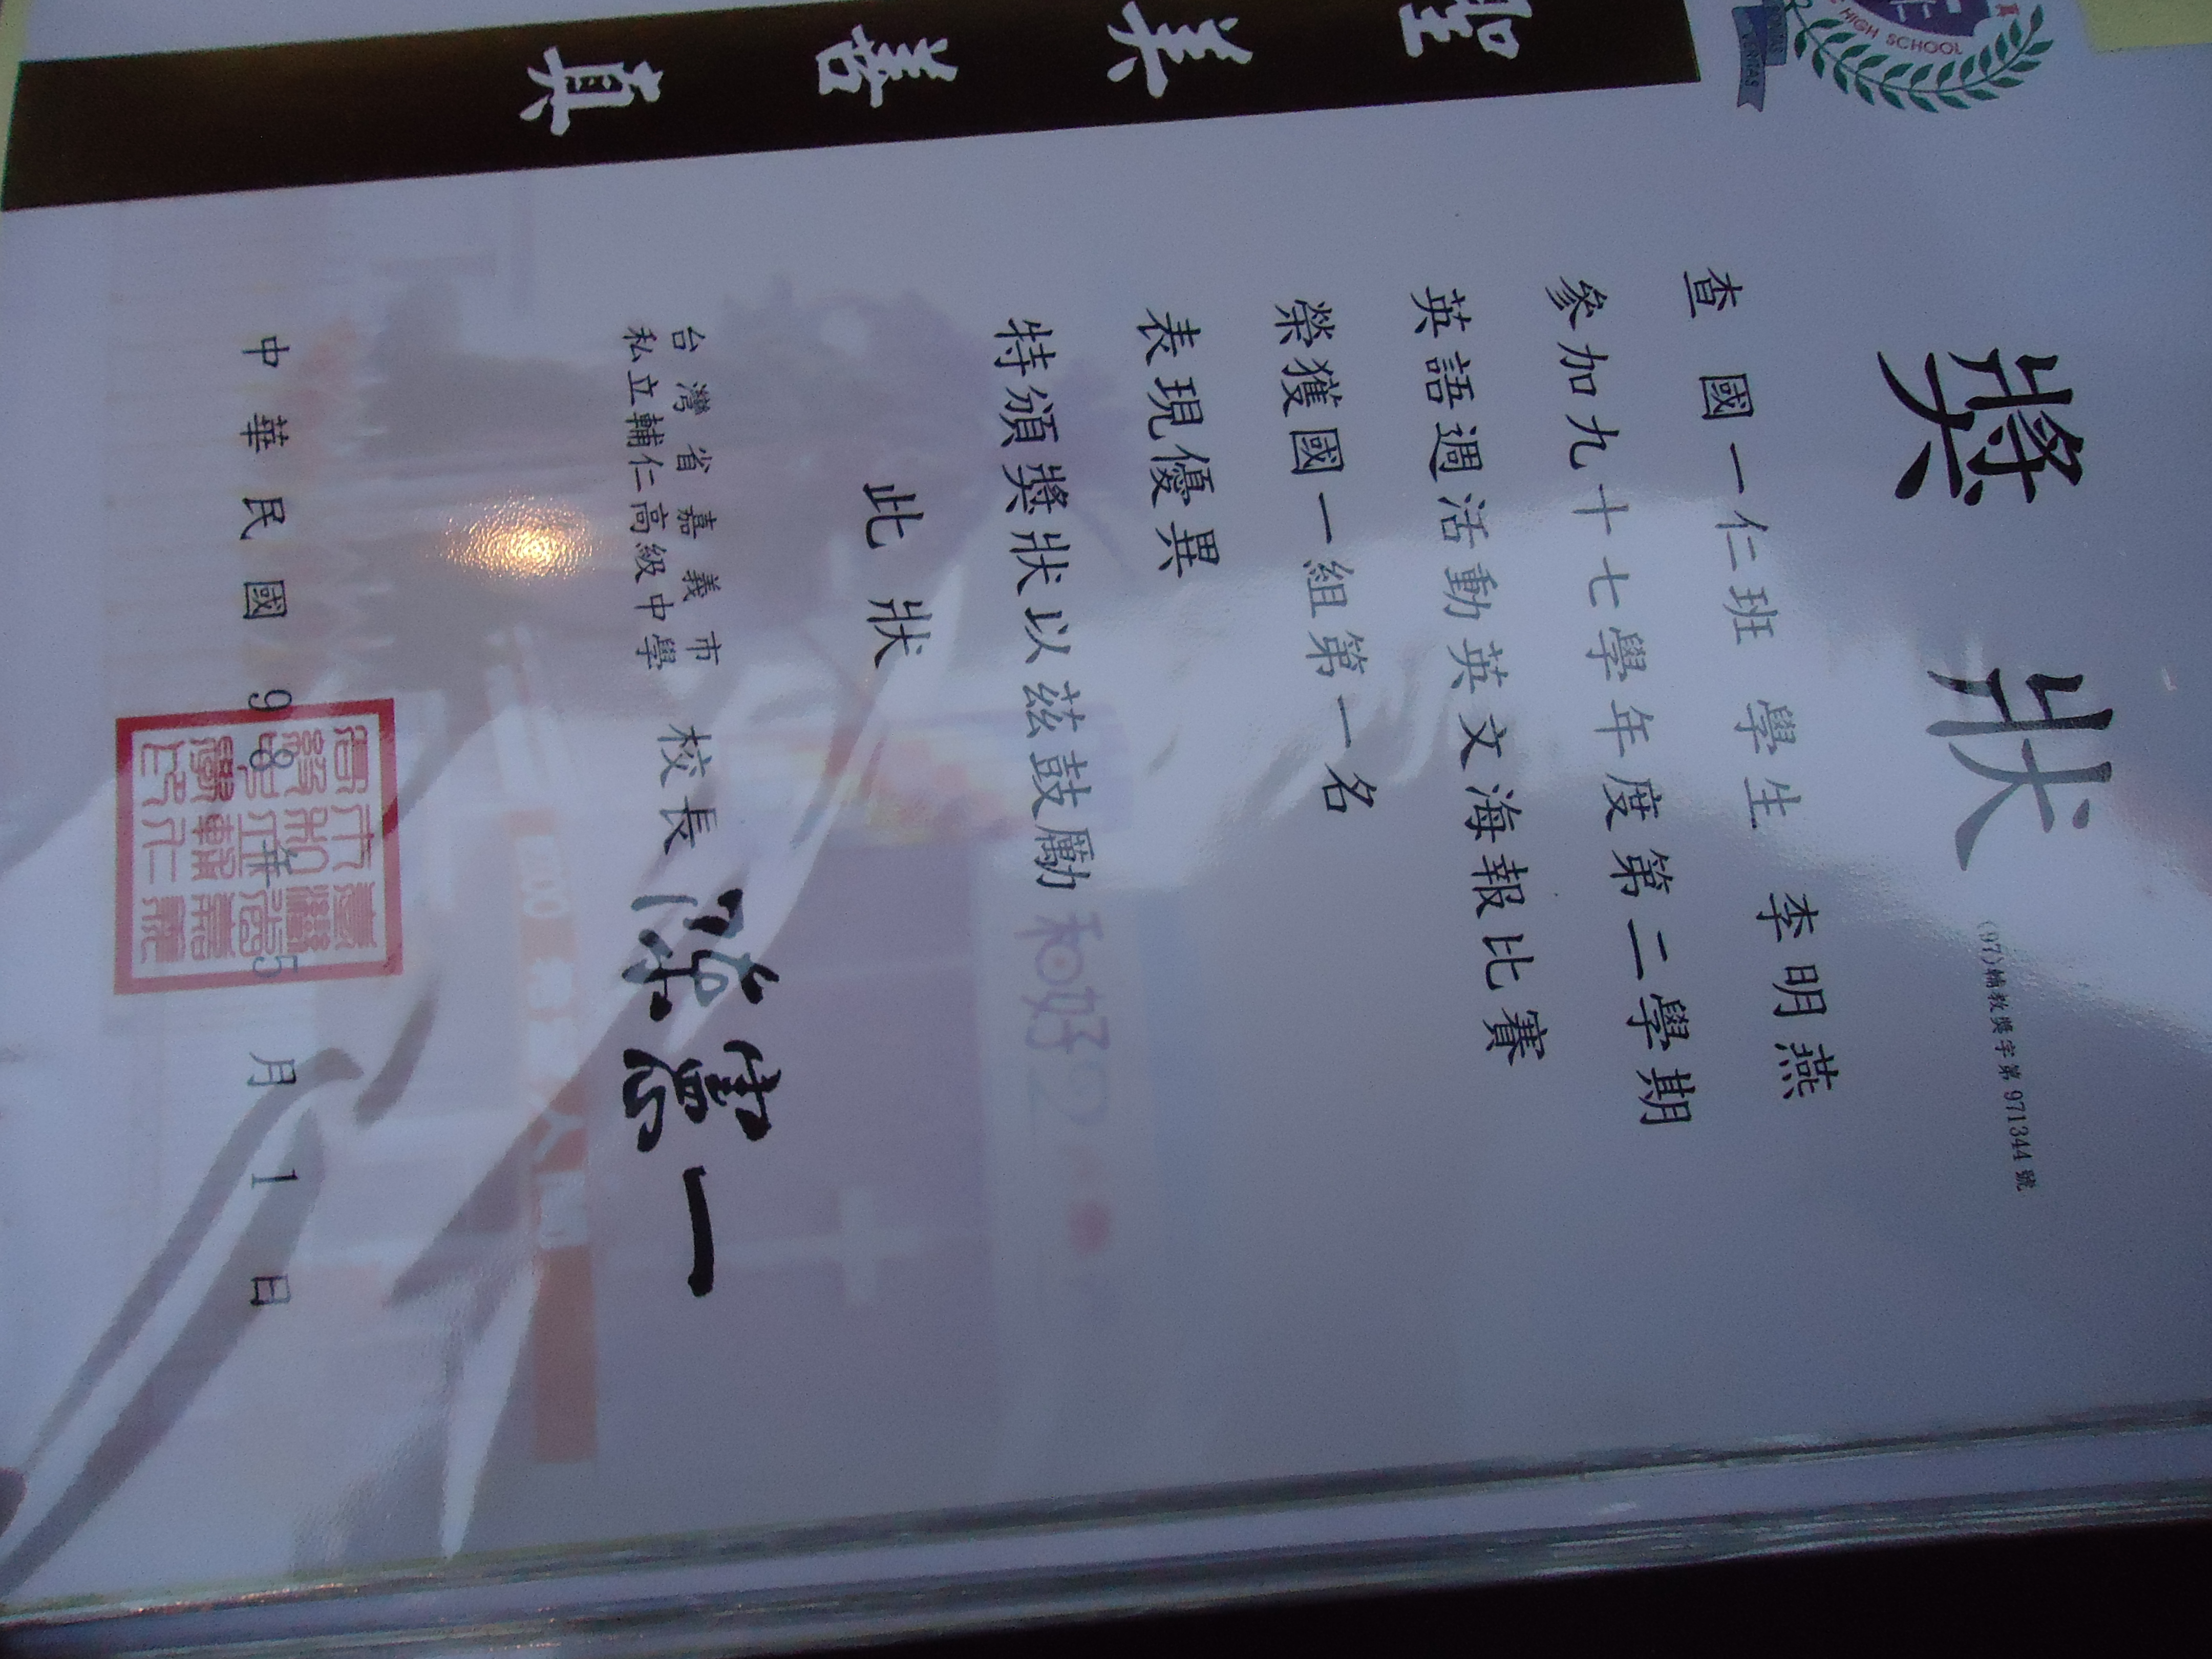 獎狀
(97)輔教獎字第971344號
查 國一仁班 學生 李明燕
參加九十七學年度第二學期
英語週活動英文海報比賽
榮獲國一組第一名
表現優異
特頒獎狀以茲鼓勵
此狀
台灣省嘉義市
私立輔仁高級中學
校長
中華民國98年5月1日
聖美善真
HIGH SCHOOL